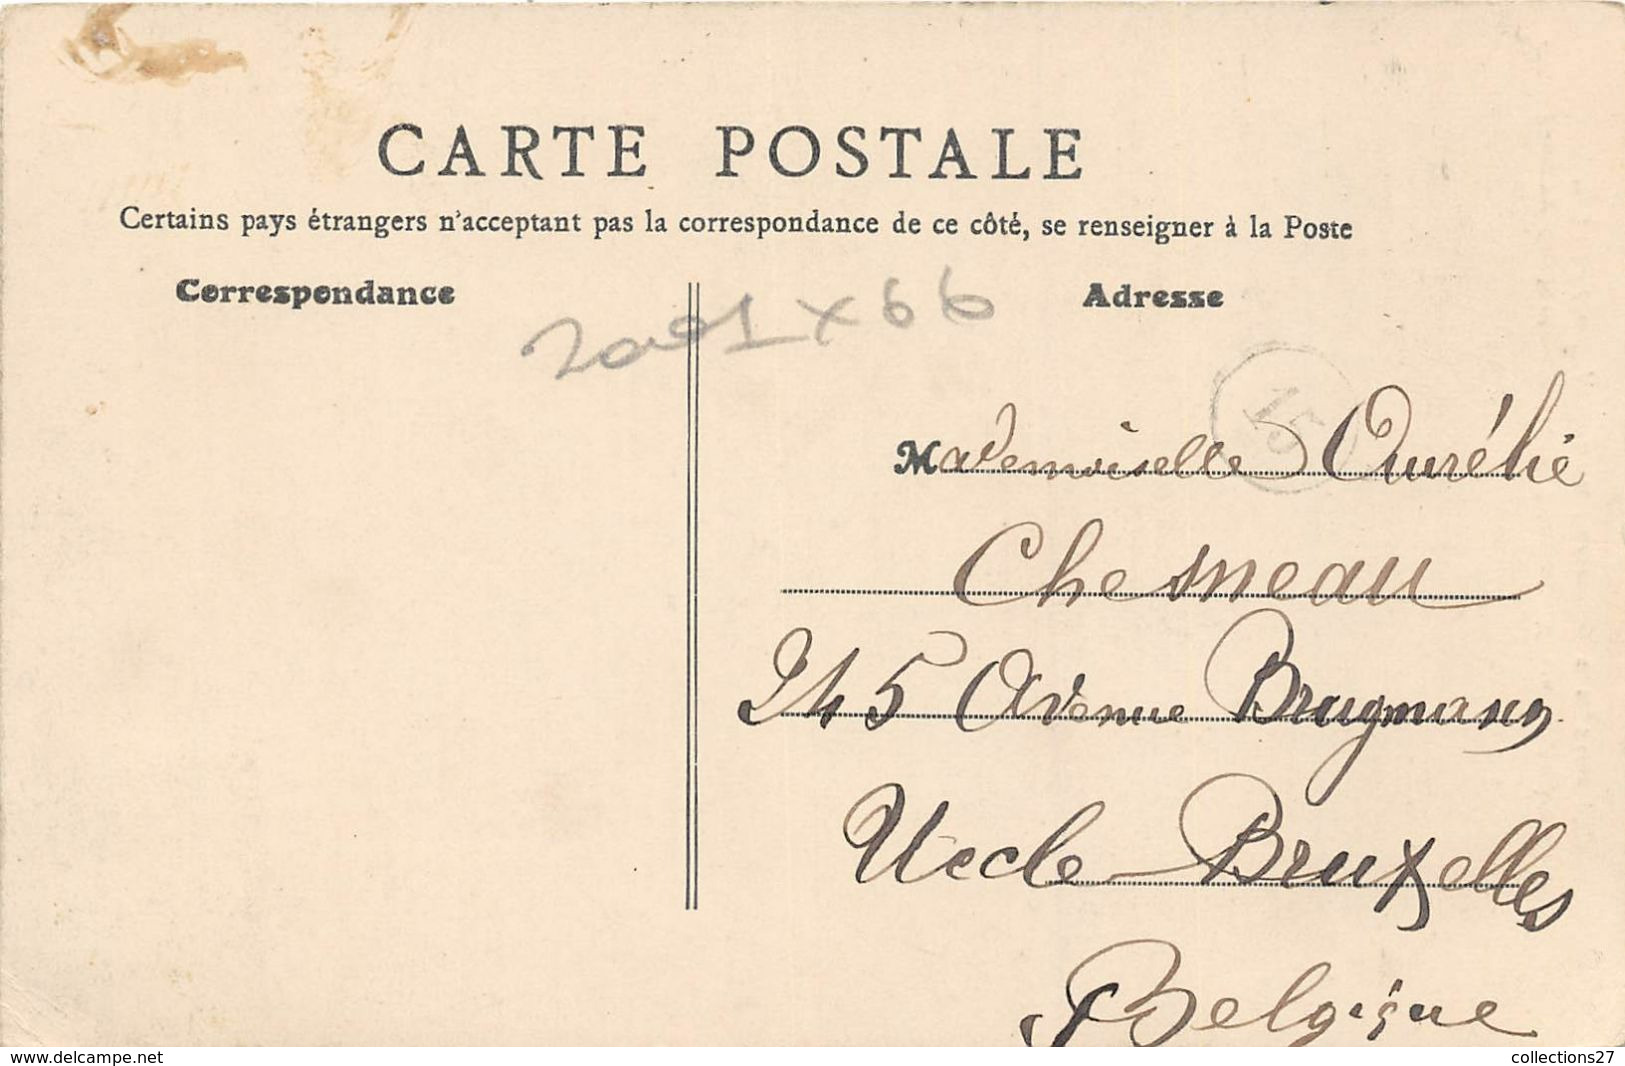 CARTE POSTALE
Certains pays étrangers n'acceptant pas la correspondance de ce côté, se renseigner à la Poste
Correspondance
Adresse
2001 x 66
15
Mademoiselle Aurélie
Chesneau
245 Avenue Brugmann
Uccle Bruxelles
Belgique
www.delcampe.net
collections27